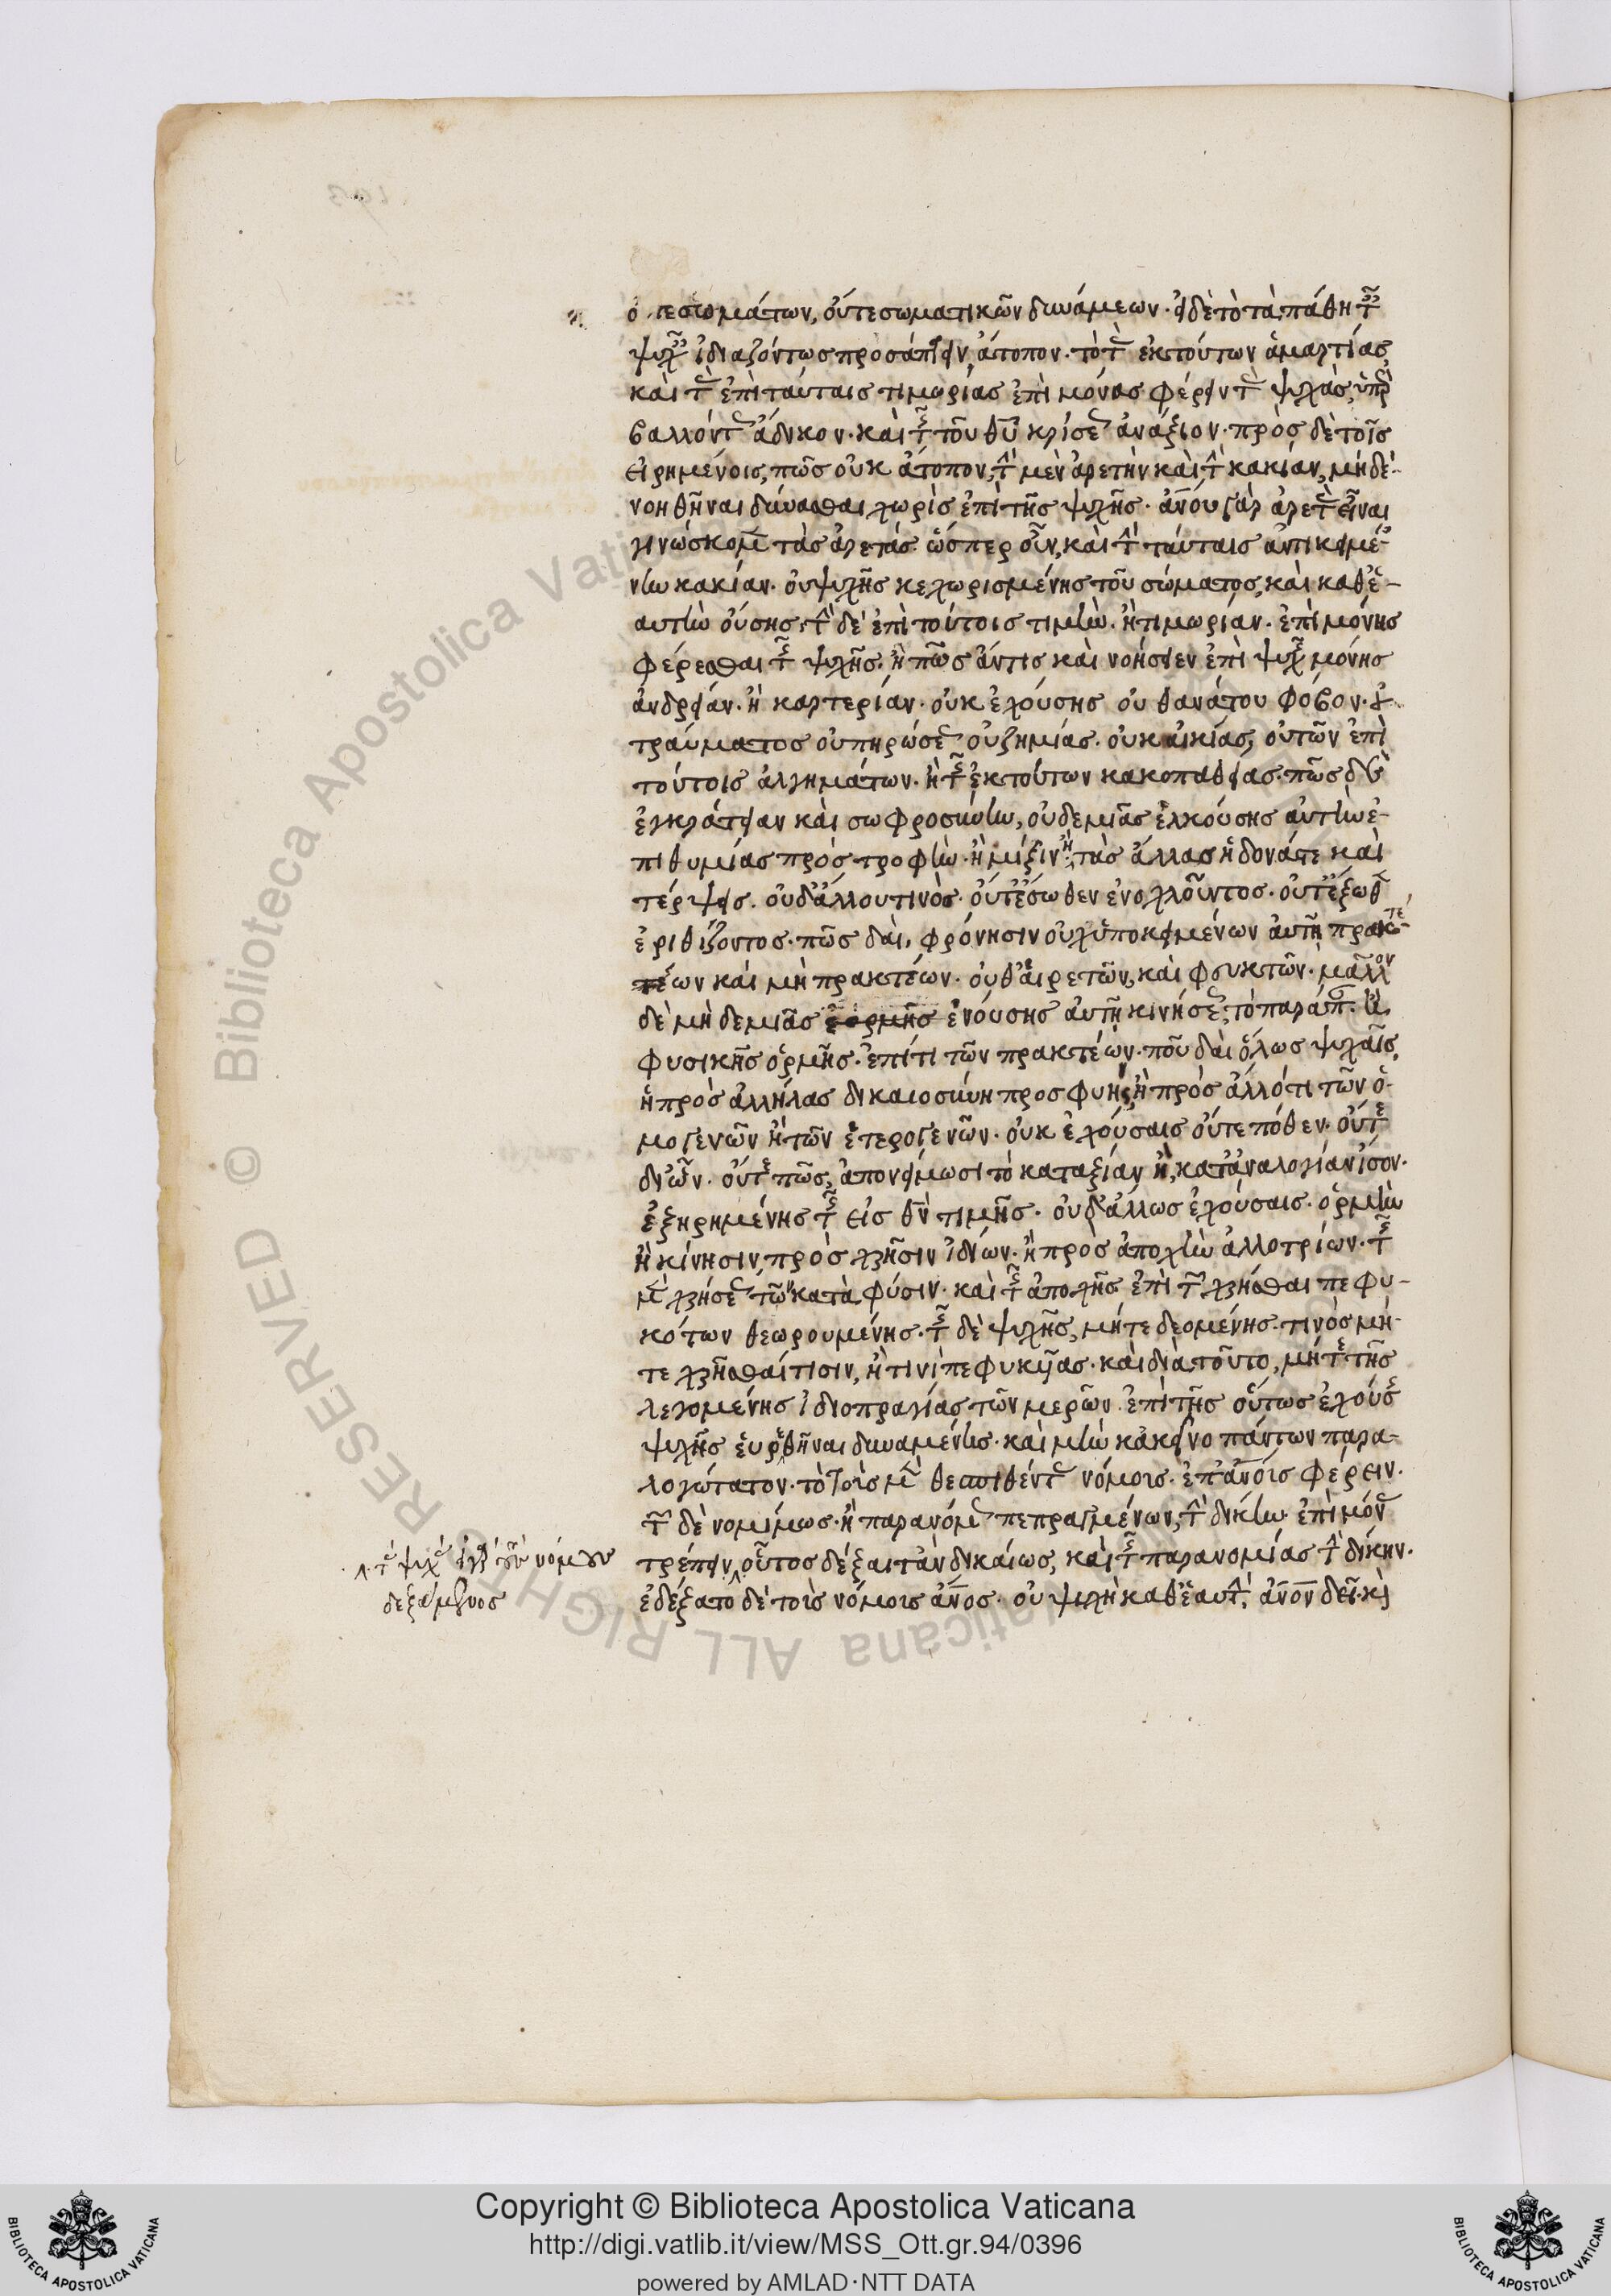 οὔτε σωμάτων, οὔτε σωματικῶν δυνάμεων. εἰ δὲ τὸ τὰ πάθη ταῖς
ψυχαῖς ἰδιαζόντως προσάπτειν, ἄτοπον. τὸ τὰς ἐκ τούτων ἁμαρτίας
καὶ τὰς ἐπὶ ταύταις τιμωρίας ἐπὶ μόνας φέρειν τὰς ψυχὰς, ὑπερ
βαλλόντως ἄδικον. καὶ τῆς τοῦ θυ κρίσεως ἀνάξιον. πρὸς δὲ τοῖς
εἰρημένοις, πῶς οὐκ ἄτοπον, τὴν μὲν ἀρετὴν καὶ τὴν κακίαν, μηδὲ
νοηθῆναι δύνασθαι χωρὶς ἐπὶ τῆς ψυχῆς. ἀνου γὰρ ἀρετὰς εἶναι
γινώσκομεν τὰς ἀρετάς. ὥσπερ οὖν, καὶ τὴν ταύταις ἀντικειμέ
νην κακίαν. οὐ ψυχῆς κεχωρισμένης τοῦ σώματος, καὶ καθ' ἑ-
αυτὴν οὔσης. τὴν δὲ ἐπὶ τούτοις τιμὴν. ἢ τιμωρίαν. ἐπὶ μόνης
φέρεσθαι τῆς ψυχῆς. ἢ πῶς ἄν τις καὶ νοήσειεν ἐπὶ ψυχῆς μόνης
ἀνδρείαν. ἢ καρτερίαν. οὐκ ἐχούσης οὐ θανάτου φόβον. οὐ
τραύματος οὐ πηρώσεως οὐ ζημίας. οὐκ αἰκίας, οὐ τῶν ἐπὶ
τούτοις ἀλγημάτων. ἢ τῆς ἐκ τούτων κακοπαθείας. πῶς δὲ
ἐγκράτειαν καὶ σωφροσύνην, οὐδεμιᾶς ἑλκούσης αὐτὴν ἐ-
πιθυμίας πρὸς τροφὴν. ἢ μίξιν ἢ τὰς ἄλλας ἡδονάς τε καὶ
τέρψεις. οὐδ' ἄλλου τινὸς. οὔτ' ἔσωθεν ἐνοχλοῦντος. οὔτ' ἔξωθεν
ἐριθίζοντος. πῶς δαὶ, φρόνησιν οὐχ ὑποκειμένων αὐτῇ πρακτέ-
ων καὶ μὴ πρακτέων. οὐδ' αἱρετῶν, καὶ φευκτῶν. μᾶλλον
δὲ μηδεμιᾶς ἐνούσης αὐτῇ κινήσεως τὸ παράπαν. ἢ
φυσικῆς ὁρμῆς. ἐπί τι τῶν πρακτέων. ποῦ δαὶ ὅλως ψυχαῖς,
ἡ πρὸς ἀλλήλας δικαιοσύνη προσφυής, ἢ πρὸς ἄλλό τι τῶν ὁ-
μογενῶν ἢ τῶν ἑτερογενῶν. οὐκ ἐχούσαις οὔτε πόθεν. οὔτε
δι' ὧν. οὔτε πῶς, ἀπονείμωσι τὸ κατ' ἀξίαν ἢ, κατ' ἀναλογίαν ἴσον.
ἐξῃρημένης τῆς εἰς θν τιμῆς. οὐδ' ἄλλως ἐχούσαις. ὁρμὴν
ἢ κίνησιν, πρὸς χρῆσιν ἰδίων. ἢ πρὸς ἀποχὴν ἀλλοτρίων. τῆς
μὲν χρήσεως τῶν κατὰ φύσιν. καὶ τῆς ἀποχῆς ἐπὶ τῶν χρῆσθαι πεφυ-
κότων θεωρουμένης. τῆς δὲ ψυχῆς, μήτε δεομένης τινὸς μή-
τε χρῆσθαί τισιν, ἢ τινὶ πεφυκυίας. καὶ διὰ τοῦτο, μήτε τῆς
λεγομένης ἰδιοπραγίας τῶν μερῶν ἐπὶ τῆς οὕτως ἐχούσης
ψυχῆς εὑρεθῆναι δυναμένης. καὶ μὴν κἀκεῖνο πάντων παρα-
λογώτατον. τὸ τοὺς μὲν θεσπισθέντας νόμους. ἐπ' ἀνους φέρειν.
τῶν δὲ νομίμως. ἢ παρανόμως πεπραγμένων, τὴν δίκην ἐπὶ μόνας
τρέπειν, οὗτος δέξαιτ' ἂν δικαίως, καὶ τῆς παρανομίας τὴν δίκην.
ἐδέξατο δὲ τοὺς νόμους ἀνος. οὐ ψυχὴ καθ' ἑαυτὴν, ἀνον δεῖ καὶ
δεξάμενος
Copyright © Biblioteca Apostolica Vaticana
http://digi.vatlib.it/view/MSS_Ott.gr.94/0396
powered by AMLAD·NTT DATA
BIBLIOTECA APOSTOLICA VATICANA
BIBLIOTECA APOSTOLICA VATICANA
Biblioteca Apostolica Vaticana ALL RIGHTS RESERVED ©